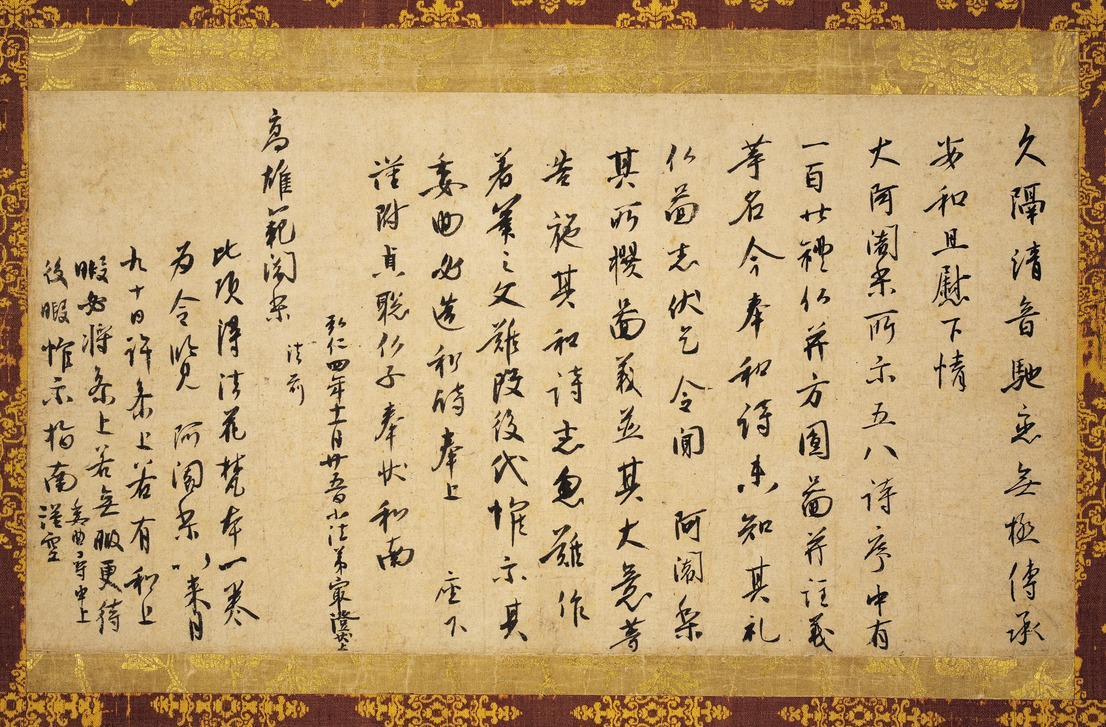 久隔清音馳恋無極傳承
安和且慰下情
大阿闍梨所示五八詩序中有
一百廿禮仏并方圓圖并註義
等名今奉和詩未知其礼
仏圖志伏乞令聞 阿闍梨
其所撰圖義並其大意等
告施其和詩者忽難作
著筆之文難改後代惟示其
委曲必造和詩奉上 座下
謹附貞聡仏子奉状和南
弘仁四年十一月廿五日小法弟最澄状上
高雄範闍梨
法前
此頃得法花梵本一巻
為令覧 阿闍梨以来月
九十日許参上若有和上
暇必将参上若無暇更待
後暇惟示指南 謹空
委曲之号申上